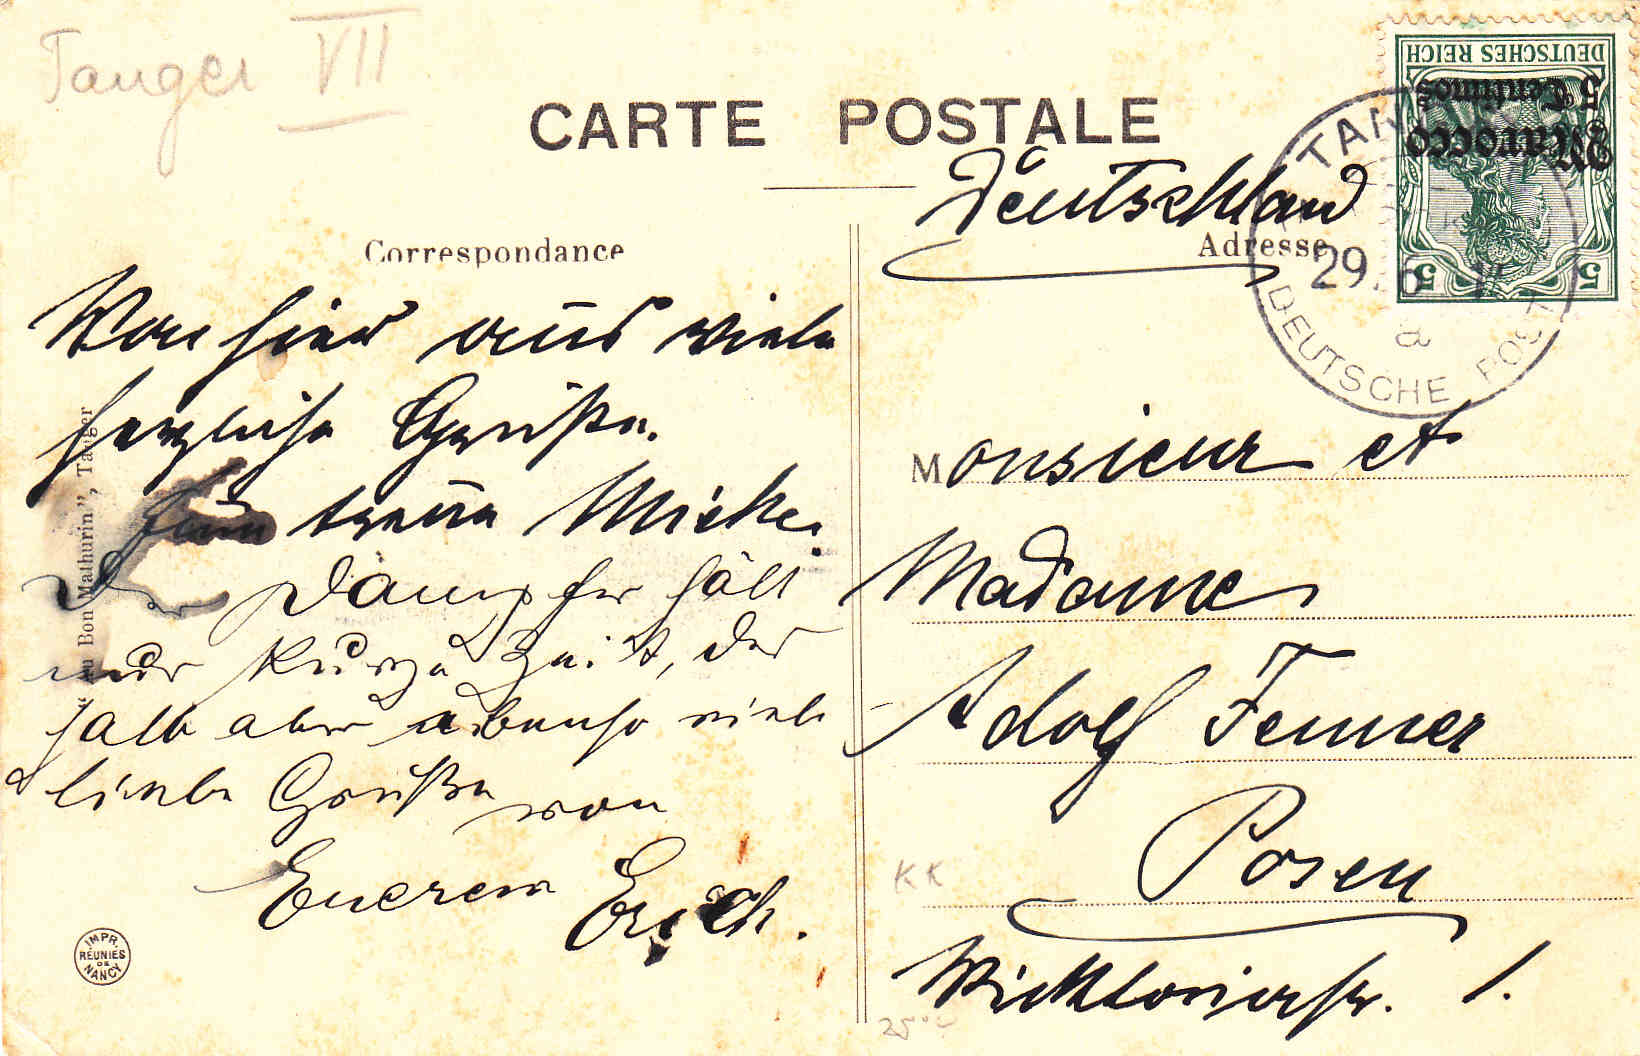 Tanger VII
CARTE POSTALE
Correspondance
Adresse
Deutschland
DEUTSCHES REICH
Marocco
5 Centimos
5 5
TAN
29. 6
a
DEUTSCHE POST
Von hier aus viele
herzliche Grüße.
Eure treue Mieke.
Der Dampfer hält
nur kurze Zeit, des
halb aber ebenso viele
liebe Grüße von
Euerem Erich.
Monsieur et
Madame
Adolf Fenner
Posen
Wicktoriastr. 1.
"Au Bon Mathurin", Tanger
IMPR. RÉUNIES DE NANCY
KK